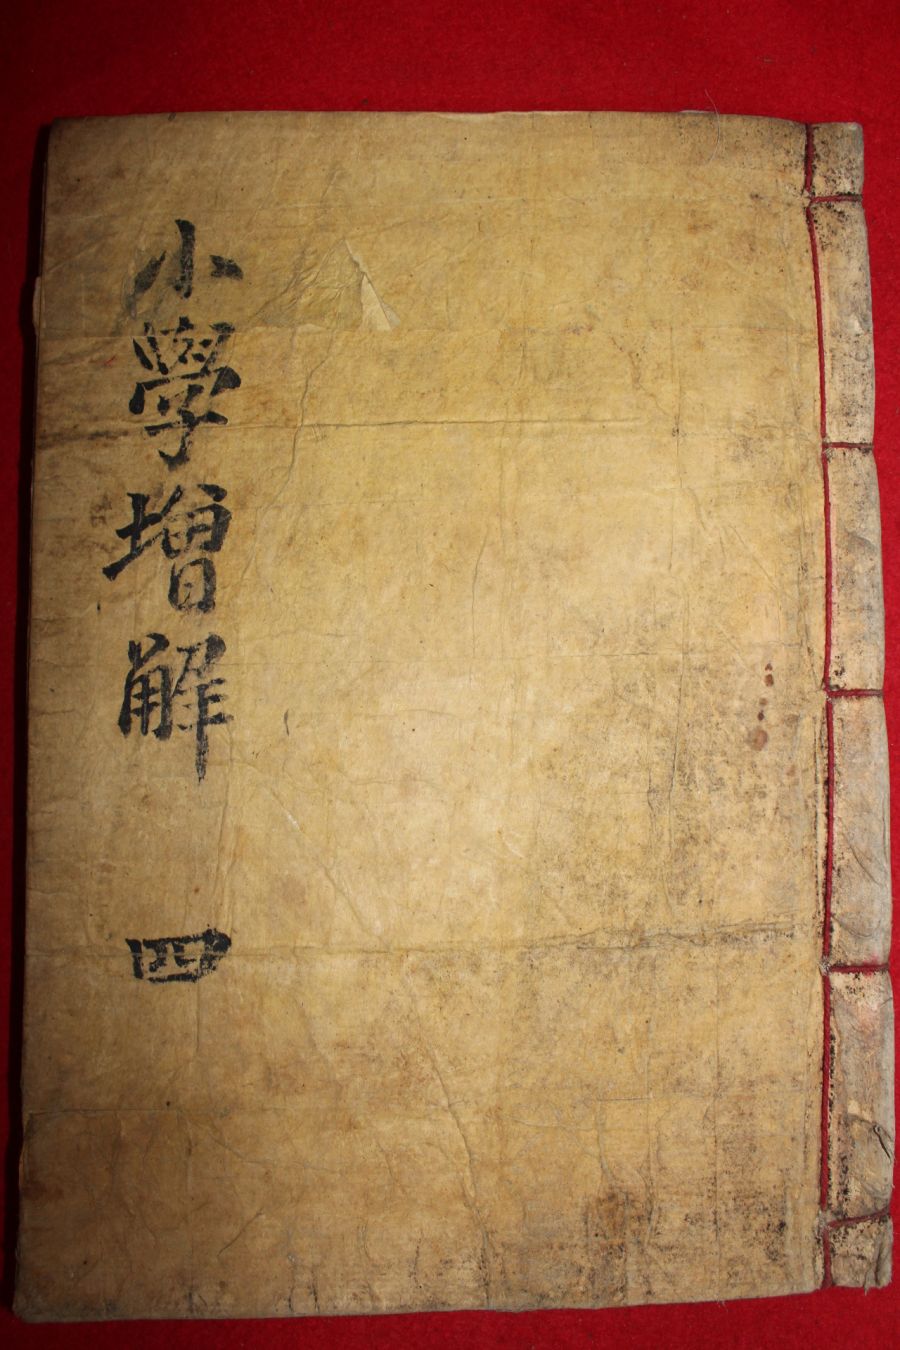 小學增解 四